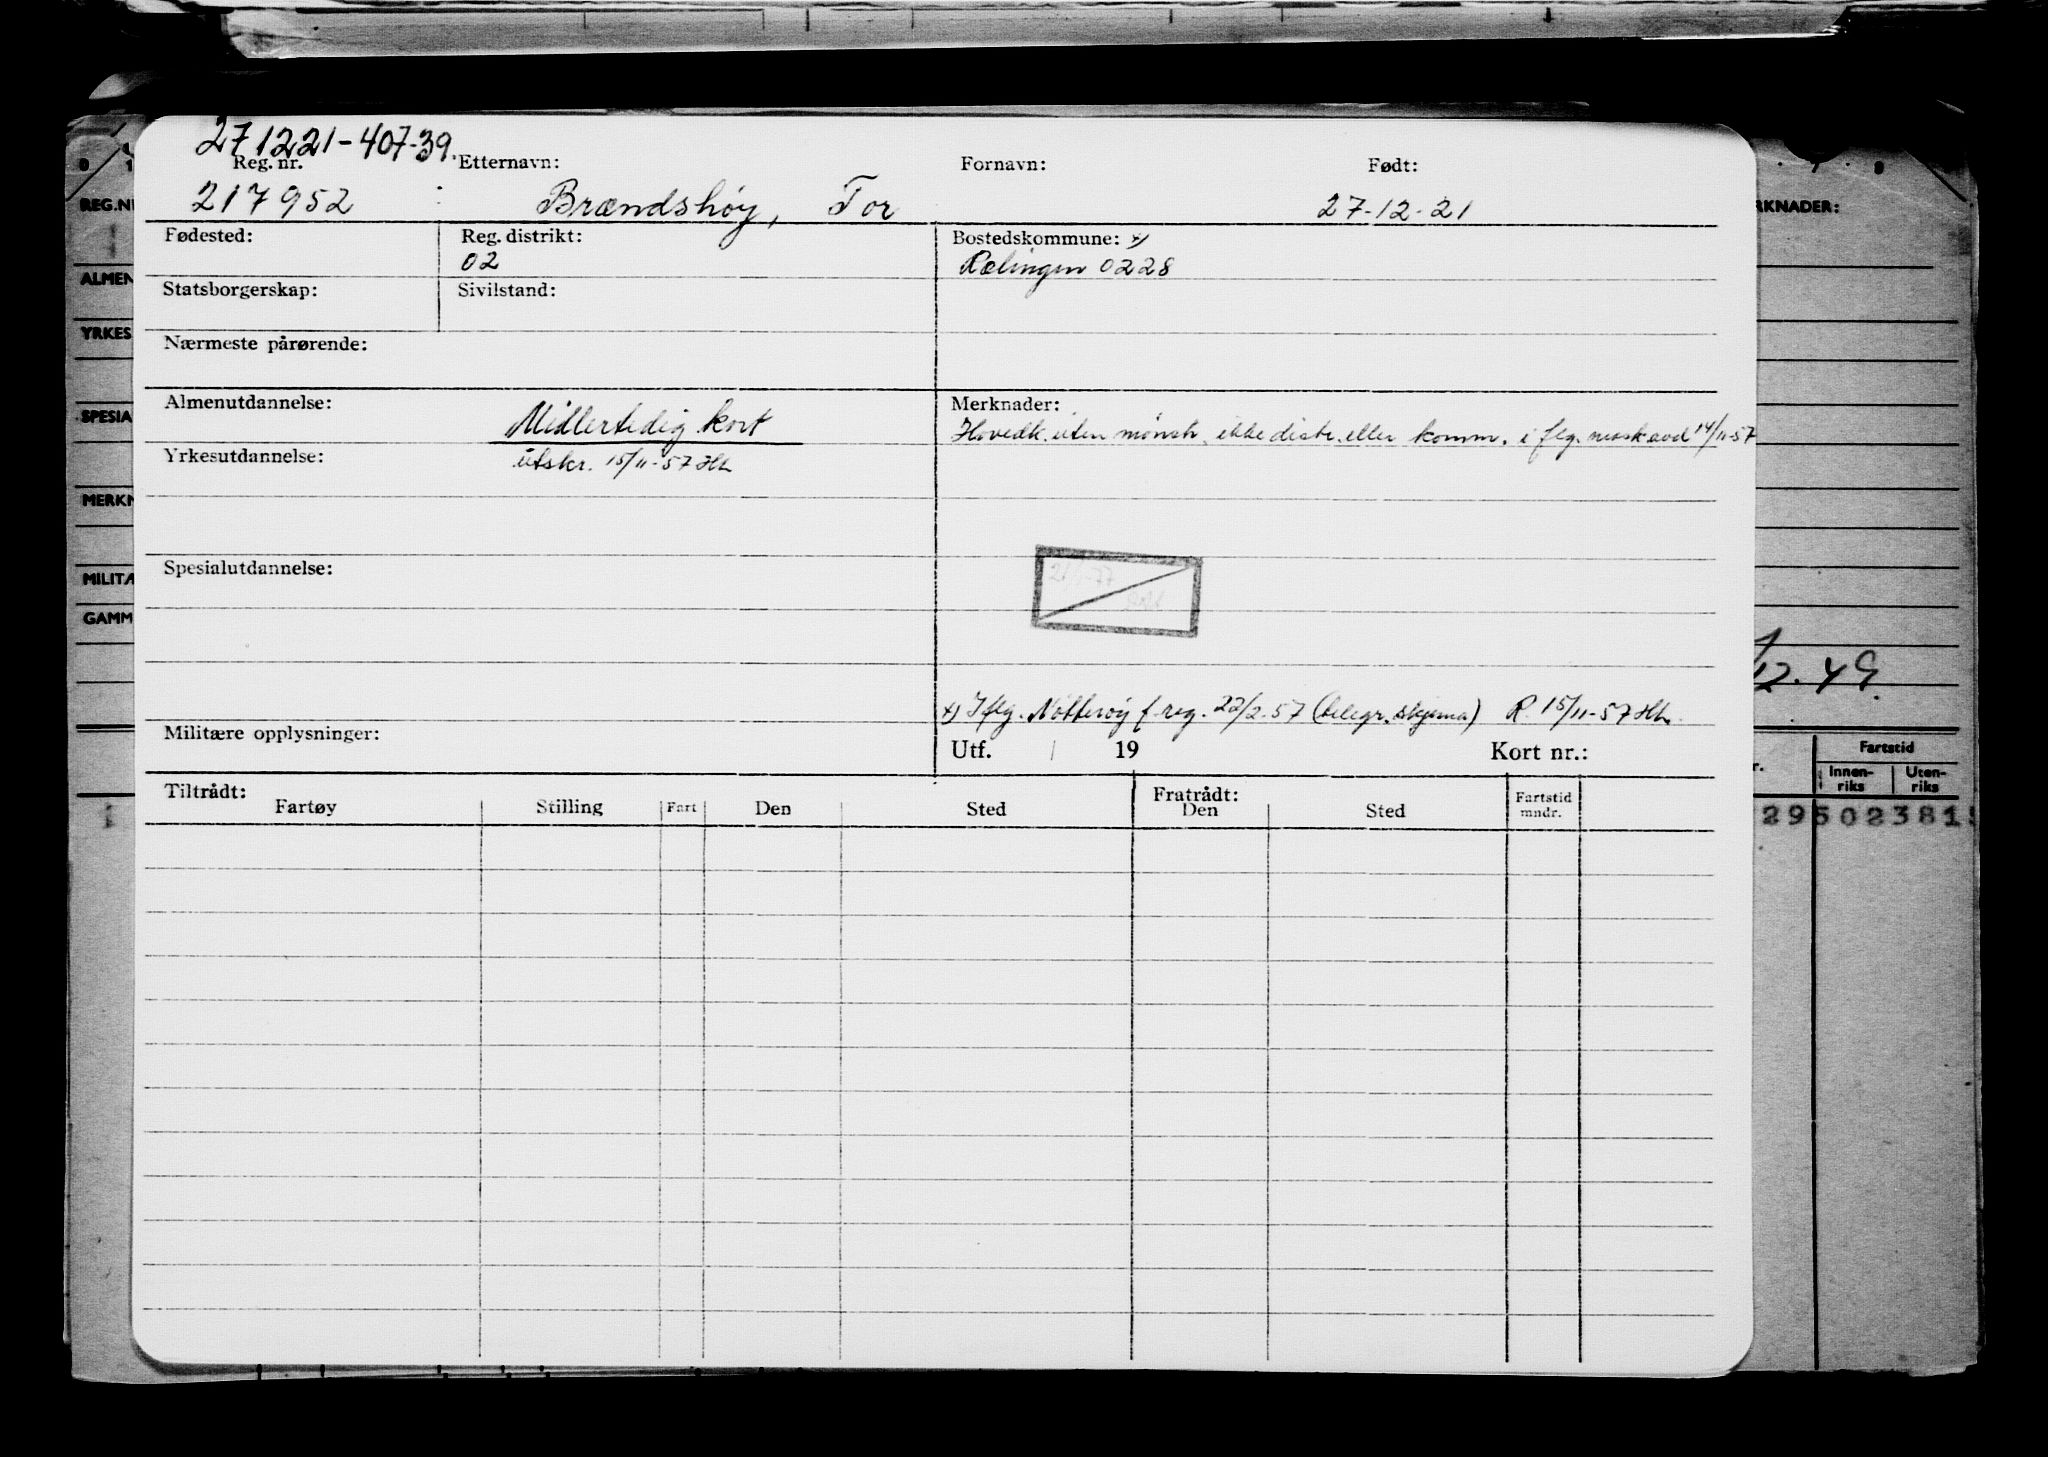 271221-407-39.
Reg. nr. Etternavn: Fornavn: Født:
217952 Brændshøy, Tor 27-12-21
Fødested: Reg. distrikt: Bostedskommune: x)
02 Rælingen 0228
Statsborgerskap: Sivilstand:
Nærmeste pårørende:
Almenutdannelse: Merknader:
Midlertidig kort
Hovedk. uten mønstr. ikke distr. eller komm. i flg. mask.avd 14/11-57
Yrkesutdannelse:
utskr. 15/11-57 Hh
Spesialutdannelse:
x) Iflg. Nøtterøy f.reg. 22/2-57 (telegr. skjema) R. 15/11-57 Hh.
Militære opplysninger:
Utf. / 19 Kort nr.:
Tiltrådt: Fratrådt:
Fartøy Stilling Fart Den Sted Den Sted Fartstid mndr.
REG.N
ALMEN
YRKES
SPESIA
MERKN
MILITÆ
GAMM
RKNADER:
12.49.
Fartstid
Innen-
riks
Uten-
riks
295023815